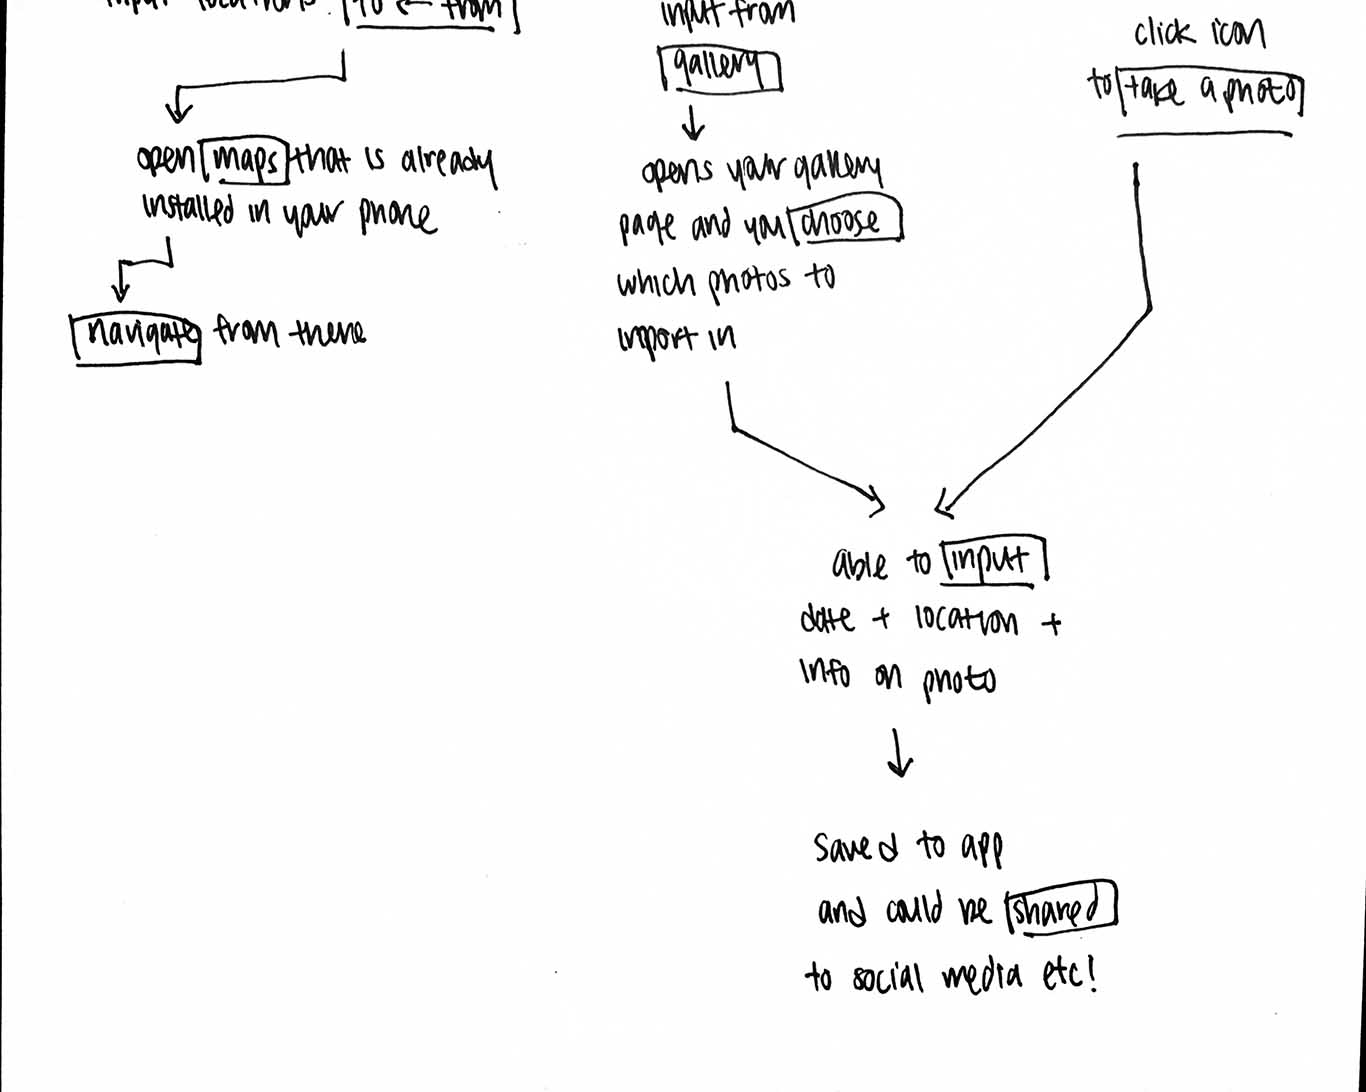 input locations: to ← from
open maps that is already
installed in your phone
navigate from there
input from
gallery
opens your gallery
page and you choose
which photos to
import in
click icon
to take a photo
able to input
date + location +
info on photo
saved to app
and could be shared
to social media etc!